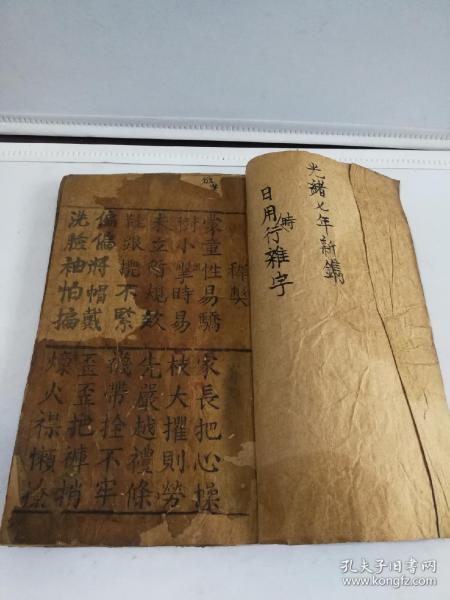 光緒七年新鐫
日用時行雜字
蒙童性易驕
樹小學時易
未立防規教
鞋跟攏不緊
偏偏將帽戴
洗臉袖怕揙
家長把心操
枝大擢則勞
先嚴越禮條
襪帶拴不牢
歪歪把褲捎
煉火襟懶撩
孔夫子旧书网
www.kongfz.com